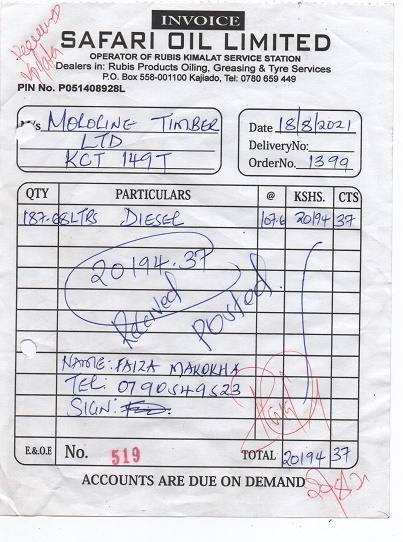 INVOICE
SAFARI OIL LIMITED
OPERATOR OF RUBIS KIMALAT SERVICE STATION
Dealers in: Rubis Products Oiling, Greasing & Tyre Services
P.O. Box 558-001100 Kajiado, Tel: 0780 659 449
PIN No. P051408928L
M/s MOLOLINE TIMBER
LTD
KCT 149T
Date 18/8/2021
DeliveryNo:
OrderNo. 1399
QTY PARTICULARS @ KSHS. CTS
187.68LTRS DIESEL 107.6 20194 37
20194.37
Received
Posted
NAME: FAIZA MAKOKHA
TEL: 0790549523
SIGN:
E.&O.E No. 519 TOTAL 20194 37
ACCOUNTS ARE DUE ON DEMAND